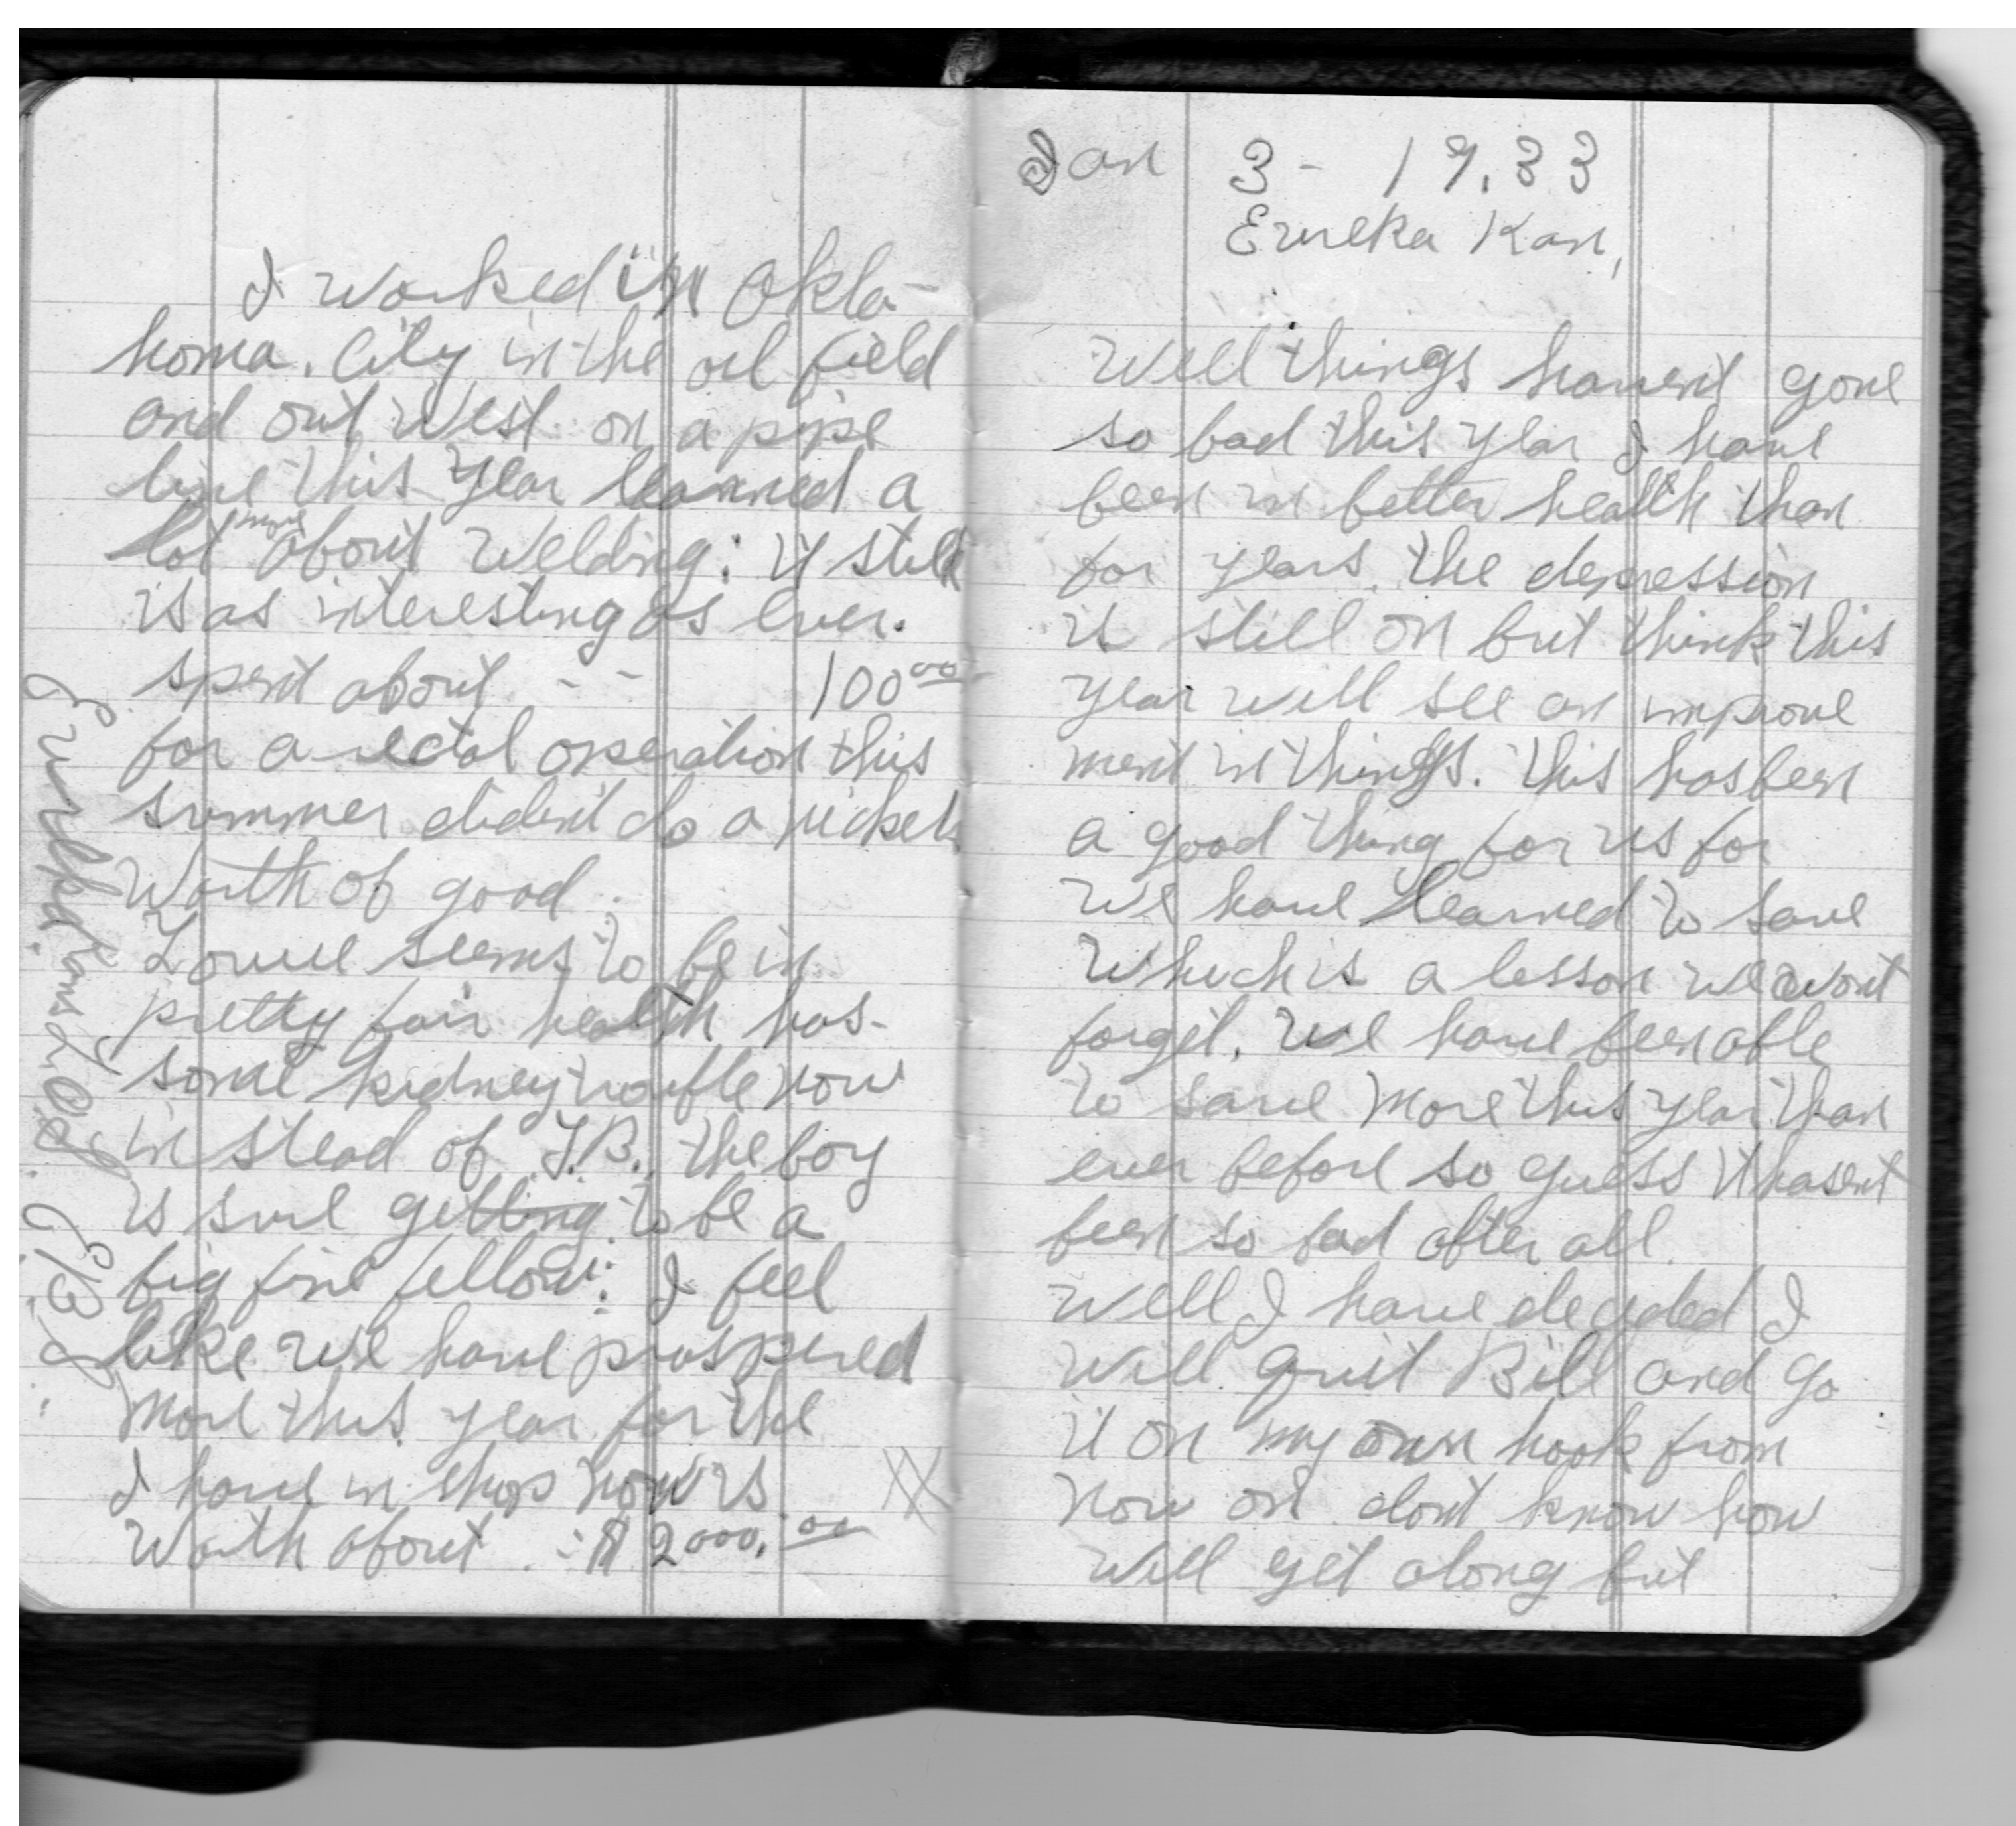 I worked in Okla-
homa. City in the oil field
and out West on a pipe
line this year learned a
lot more about Welding: it still
is as interesting as ever.
spent about - - 100.00
for a rectal operation this
summer dident do a nickels
Worth of good.
seems to be in
pretty fair health has.
some kidney trouble now
in stead of T.B. the boy
is sure getting to be a
big fine fellow: I feel
like we have prospered
more this year for the
I have in shop now is
Worth about. $2000.00
Eureka Kans
C.B.
Jan 3- 19.33
Eureka Kan,
Well things havent gone
so bad this year I have
been in better health than
for years. the depression
is still on but think this
year will see an improve
ment in things. this has been
a good thing for us for
We have learned to save
Which is a lesson we wont
forget. We have been able
to save more this year than
ever before so guess it hasent
been so bad after all.
Well I have decided I
Will quit Bill and go
it on my own hook from
now on dont know how
Will get along but